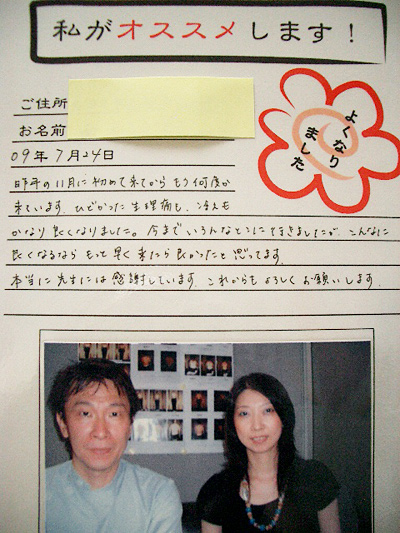 私がオススメします！
ご住所
お名前
09年7月24日
よくなり
ました
昨年の11月に初めて来てからもう何度か
来ています。ひどかった生理痛も、冷えも
かなり良くなりました。今までいろんなとこに行きましたが、こんなに
良くなるならもっと早く来たら良かったと思ってます。
本当に先生には感謝しています。これからもよろしくお願いします。